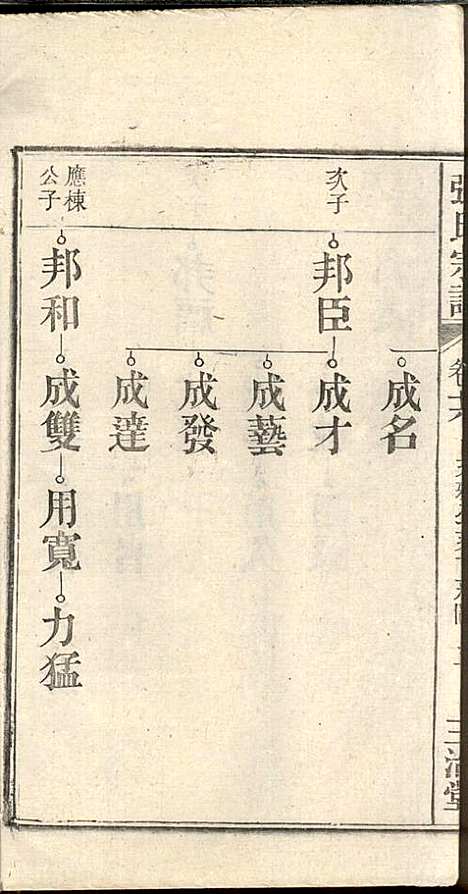 張氏宗譜
卷六
成名
次子
邦臣
成才
成藝
成發
成達
應棟公子
邦和
成雙
用寬
力猛